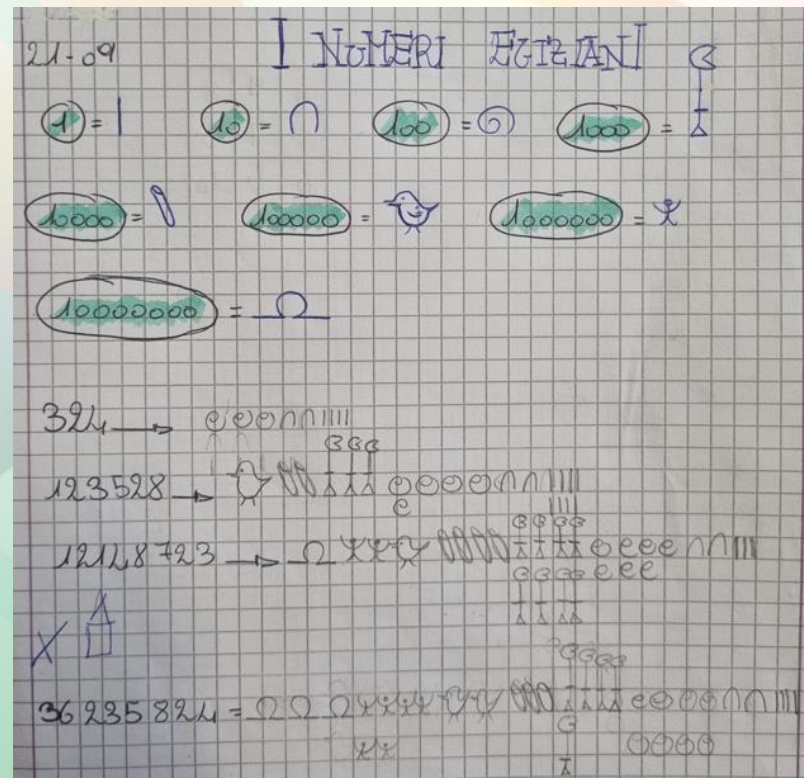 21-09 I NUMERI EGIZIANI
1 = 10 = 100 = 1000 =
10000 = 100000 = 1000000 =
10000000 =
324
123528
12148723
36235824 =